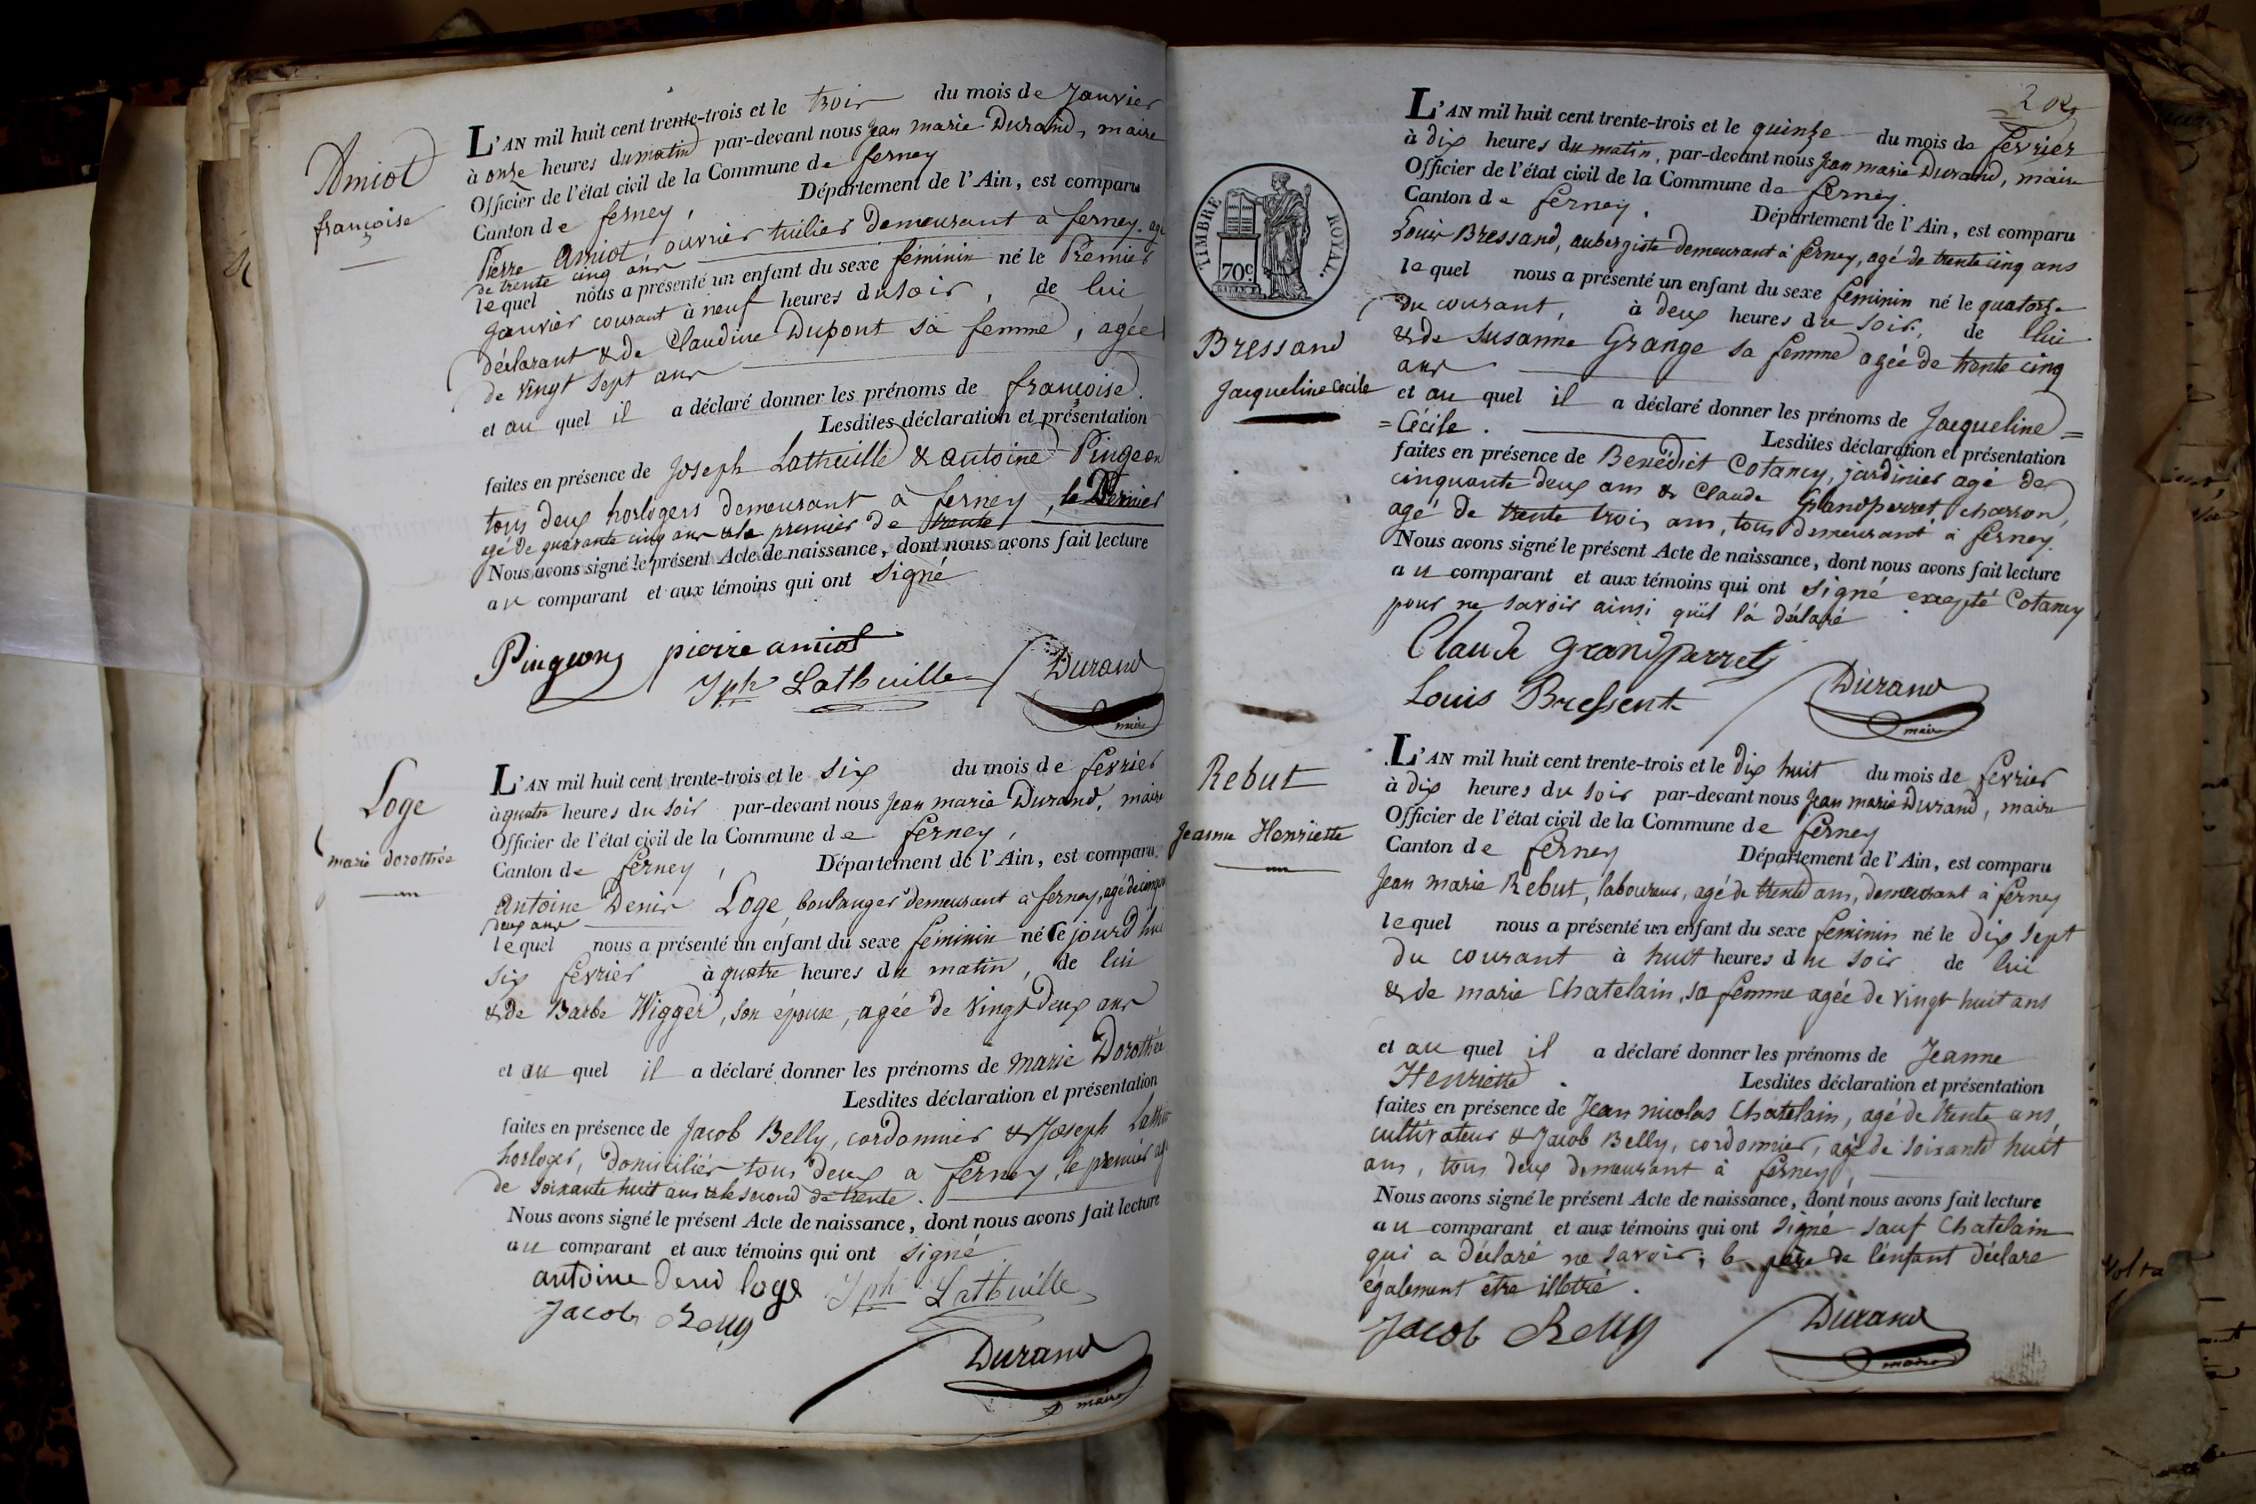 Amiot
françoise
L'AN mil huit cent trente-trois et le trois du mois de Janvier
à onze heures du matin par-devant nous Jean marie Durand, maire
Officier de l'état civil de la Commune de ferney
Canton de ferney, Département de l'Ain, est comparu
Pierre Amiot, ouvrier tuilier demeurant à ferney, agé
de trente cinq ans
lequel nous a présenté un enfant du sexe féminin né le Premier
Janvier courant à neuf heures du soir, de lui
déclarant & de Claudine Dupont sa femme, agée
de vingt sept ans
et au quel il a déclaré donner les prénoms de françoise.
Lesdites déclaration et présentation
faites en présence de Joseph Lathuille & antoine Pingeon
tous deux horlogers demeurant à ferney, le Dernier
agé de quarante cinq ans & le premier de trente
Nous avons signé le présent Acte de naissance, dont nous avons fait lecture
au comparant et aux témoins qui ont signé
Pingeon pierre amiot
Jph Lathuille Durand
maire
Loge
marie dorothée
L'AN mil huit cent trente-trois et le six du mois de février
à quatre heures du soir par-devant nous Jean marie Durand, maire
Officier de l'état civil de la Commune de ferney,
Canton de ferney, Département de l'Ain, est comparu
Antoine Denis Loge, boulanger demeurant à ferney, agé de
deux ans
lequel nous a présenté un enfant du sexe féminin né ce jourd'hui
six février à quatre heures du matin, de lui
& de Barbe Wigger, son épouse, agée de vingt deux ans
et au quel il a déclaré donner les prénoms de marie Dorothée
Lesdites déclaration et présentation
faites en présence de Jacob Belly, cordonnier & Joseph
horloger, domiciliés tous deux a ferney, le premier agé
de soixante huit ans & le second de trente.
Nous avons signé le présent Acte de naissance, dont nous avons fait lecture
au comparant et aux témoins qui ont signé
antoine Denis loge Jph Lathuille
Jacob Belly
Durand
maire
209
TIMBRE ROYAL.
70c
Bressand
Jacqueline Cecile
L'AN mil huit cent trente-trois et le quinze du mois de février
à dix heures du matin, par-devant nous Jean marie Durand, maire
Officier de l'état civil de la Commune de ferney.
Canton de ferney, Département de l'Ain, est comparu
Louis Bressand, aubergiste demeurant à ferney, agé de trente cinq ans
lequel nous a présenté un enfant du sexe féminin né le quatorze
du courant, à deux heures du soir, de lui
& de Susanne Grange sa femme agée de trente cinq
ans
et au quel il a déclaré donner les prénoms de Jacqueline =
= Cécile. Lesdites déclaration et présentation
faites en présence de Benédict Cotancy, jardinier agé de
cinquante deux ans & Claude Grandperret charron,
agé de trente trois ans, tous demeurant à ferney.
Nous avons signé le présent Acte de naissance, dont nous avons fait lecture
au comparant et aux témoins qui ont signé excepté Cotancy
pour ne savoir ainsi qu'il l'a déclaré
Claude grandperret
Louis Bressent Durand
maire
Rebut
Jeanne Henriette
L'AN mil huit cent trente-trois et le dix huit du mois de février
à dix heures du soir par-devant nous Jean marie Durand, maire
Officier de l'état civil de la Commune de ferney
Canton de ferney Département de l'Ain, est comparu
Jean marie Rebut, laboureur, agé de trente ans, demeurant à ferney
lequel nous a présenté un enfant du sexe féminin né le dix sept
du courant à huit heures du soir de lui
& de marie Chatelain, sa femme agée de vingt huit ans
et au quel il a déclaré donner les prénoms de Jeanne
Henriette. Lesdites déclaration et présentation
faites en présence de Jean nicolas Chatelain, agé de trente ans,
cultivateur & Jacob Belly, cordonnier, agé de soixante huit
ans, tous deux demeurant à ferney,
Nous avons signé le présent Acte de naissance, dont nous avons fait lecture
au comparant et aux témoins qui ont signé sauf Chatelain
qui a déclaré ne savoir; le père de l'enfant déclare
également être illetré.
Jacob Belly Durand
maire